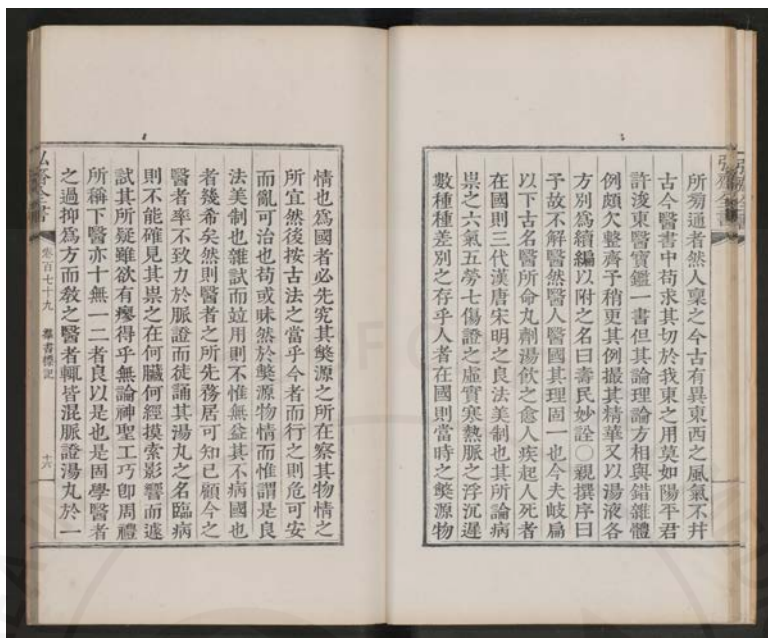 所旁通者然人稟之今古有異東西之風氣不幷
古今醫書中苟求其切於我東之用莫如陽平君
許浚東醫寶鑑一書但其論理論方相與錯雜體
例頗欠整齊予稍更其例撮其精華又以湯液各
方別爲續編以附之名曰壽民妙詮〇親撰序曰
予故不解醫然醫人醫國其理固一也今夫岐扁
以下古名醫所命丸劑湯飮之愈人疾起人死者
在國則三代漢唐宋明之良法美制也其所論病
祟之六氣五勞七傷證之虛實寒熱脈之浮沉遲
數種種差別之存乎人者在國則當時之獘源物
情也爲國者必先究其獘源之所在察其物情之
所宜然後按古法之當乎今者而行之則危可安
而亂可治也苟或昧然於獘源物情而惟謂是良
法美制也雜試而竝用則不惟無益其不病國也
者幾希矣然則醫者之所先務居可知已顧今之
醫者率不致力於脈證而徒誦其湯丸之名臨病
則不能確見其祟之在何臟何經摸索影響而遽
試其所疑雖欲有瘳得乎無論神聖工巧卽周禮
所稱下醫亦十無一二者良以是也是固學醫者
之過抑爲方而敎之醫者輒皆混脈證湯丸於一
弘齋全書
卷百七十九
羣書標記
十六